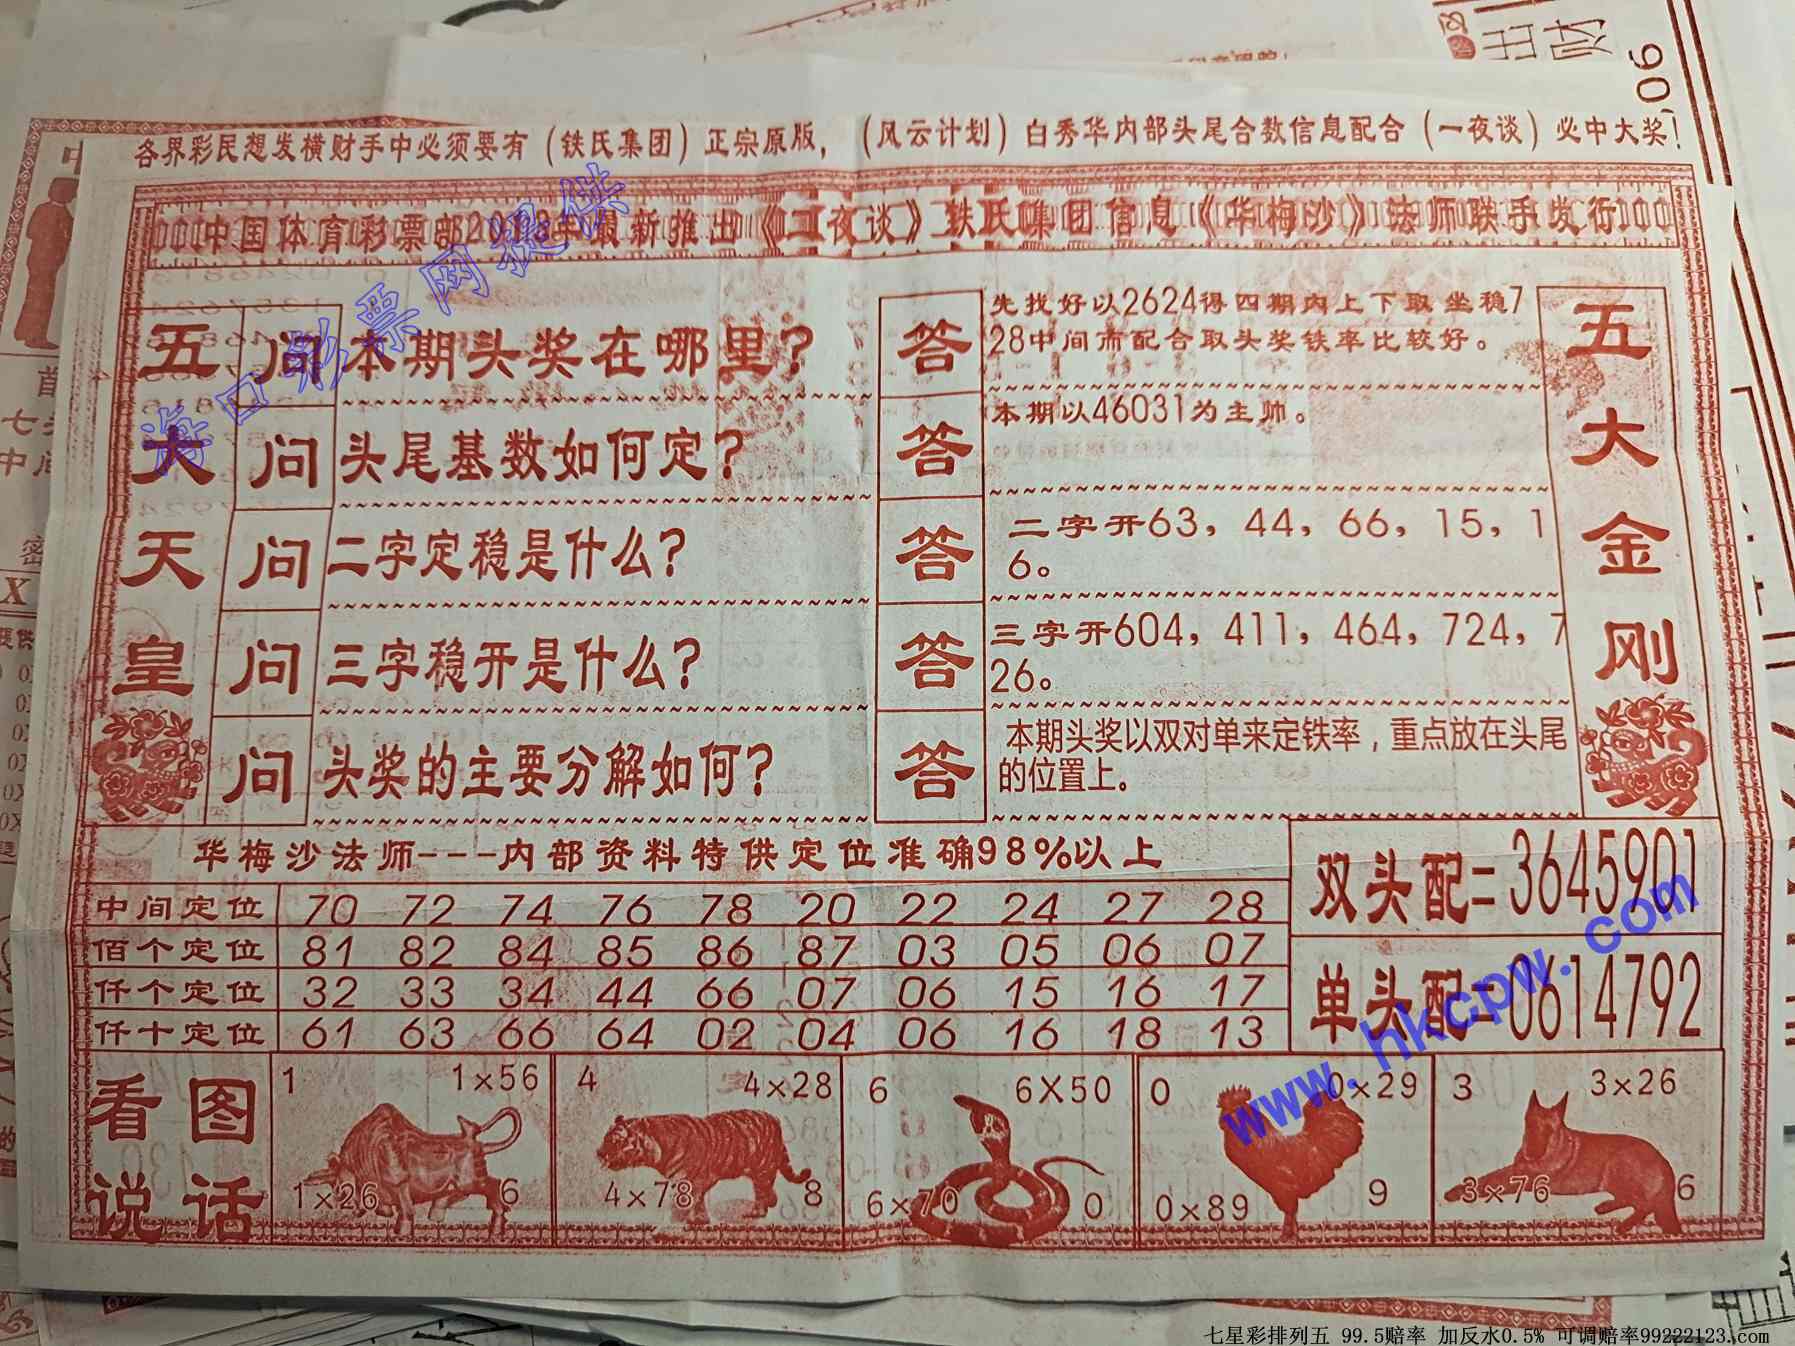 各界彩民想发横财手中必须要有（铁氏集团）正宗原版，（风云计划）白秀华内部头尾合数信息配合（一夜谈）必中大奖！
中国体育彩票部2018年最新推出《二夜谈》铁氏集团信息《华梅沙》法师联手发行
海口彩票网提供
五大天皇
问 本期头奖在哪里？
答 先找好以2624得四期内上下取坐稳7
28中间而配合取头奖铁率比较好。
问 头尾基数如何定？
答 本期以46031为主帅。
问 二字定稳是什么？
答 二字开63，44，66，15，1
6。
问 三字稳开是什么？
答 三字开604，411，464，724，7
26。
问 头奖的主要分解如何？
答 本期头奖以双对单来定铁率，重点放在头尾
的位置上。
五大金刚
华梅沙法师---内部资料特供定位准确98%以上
中间定位 70 72 74 76 78 20 22 24 27 28
佰个定位 81 82 84 85 86 87 03 05 06 07
仟个定位 32 33 34 44 66 07 06 15 16 17
仟十定位 61 63 66 64 02 04 06 16 18 13
双头配=3645901
单头配=0614792
www.hkcpw.com
看图
说话
1 1×56
1×26 6
4 4×28
4×78 8
6 6X50
6×70 0
0 0×29
0×89 9
3 3×26
3×76 6
七星彩排列五 99.5赔率 加反水0.5% 可调赔率99222123.com